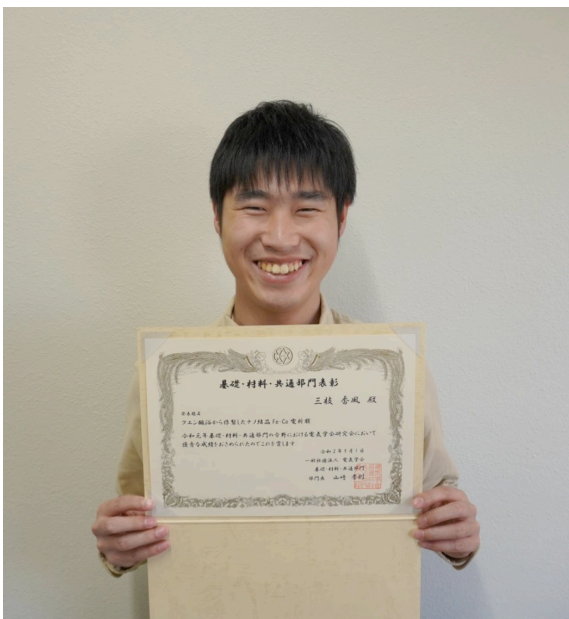 基礎・材料・共通部門表彰
三枝 香風 殿
発表題名
クエン酸浴から作製したナノ結晶Fe-Co電析膜
令和元年基礎・材料・共通部門の分野における電気学会研究会において
優秀な成績をおさめられたのでこれを賞します
一般社団法人 電気学会
基礎・材料・共通部門
部門長